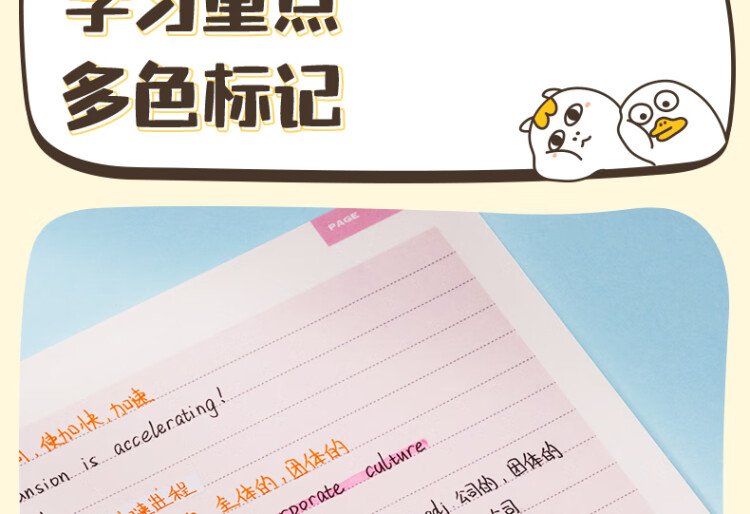 学习重点
多色标记
PAGE
使加快,加速
nsion is accelerating!
速进程
全体的,团体的
rporate culture
adj 公司的,团体的
公司